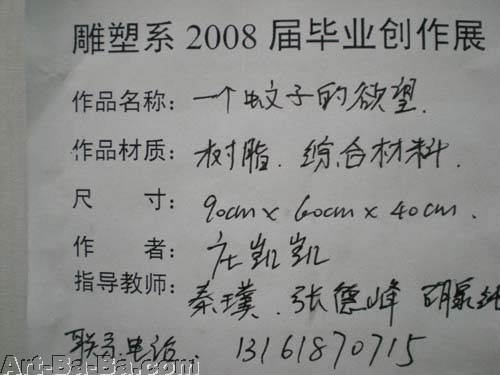 雕塑系 2008 届毕业创作展
作品名称：一个蚊子的欲望.
作品材质：树脂. 综合材料.
尺 寸：90cm x 60cm x 40cm.
作 者：庄凯凯
指导教师：秦璞. 张德峰 胡泉纯
联系电话. 13161870715
Art-Ba-Ba.com